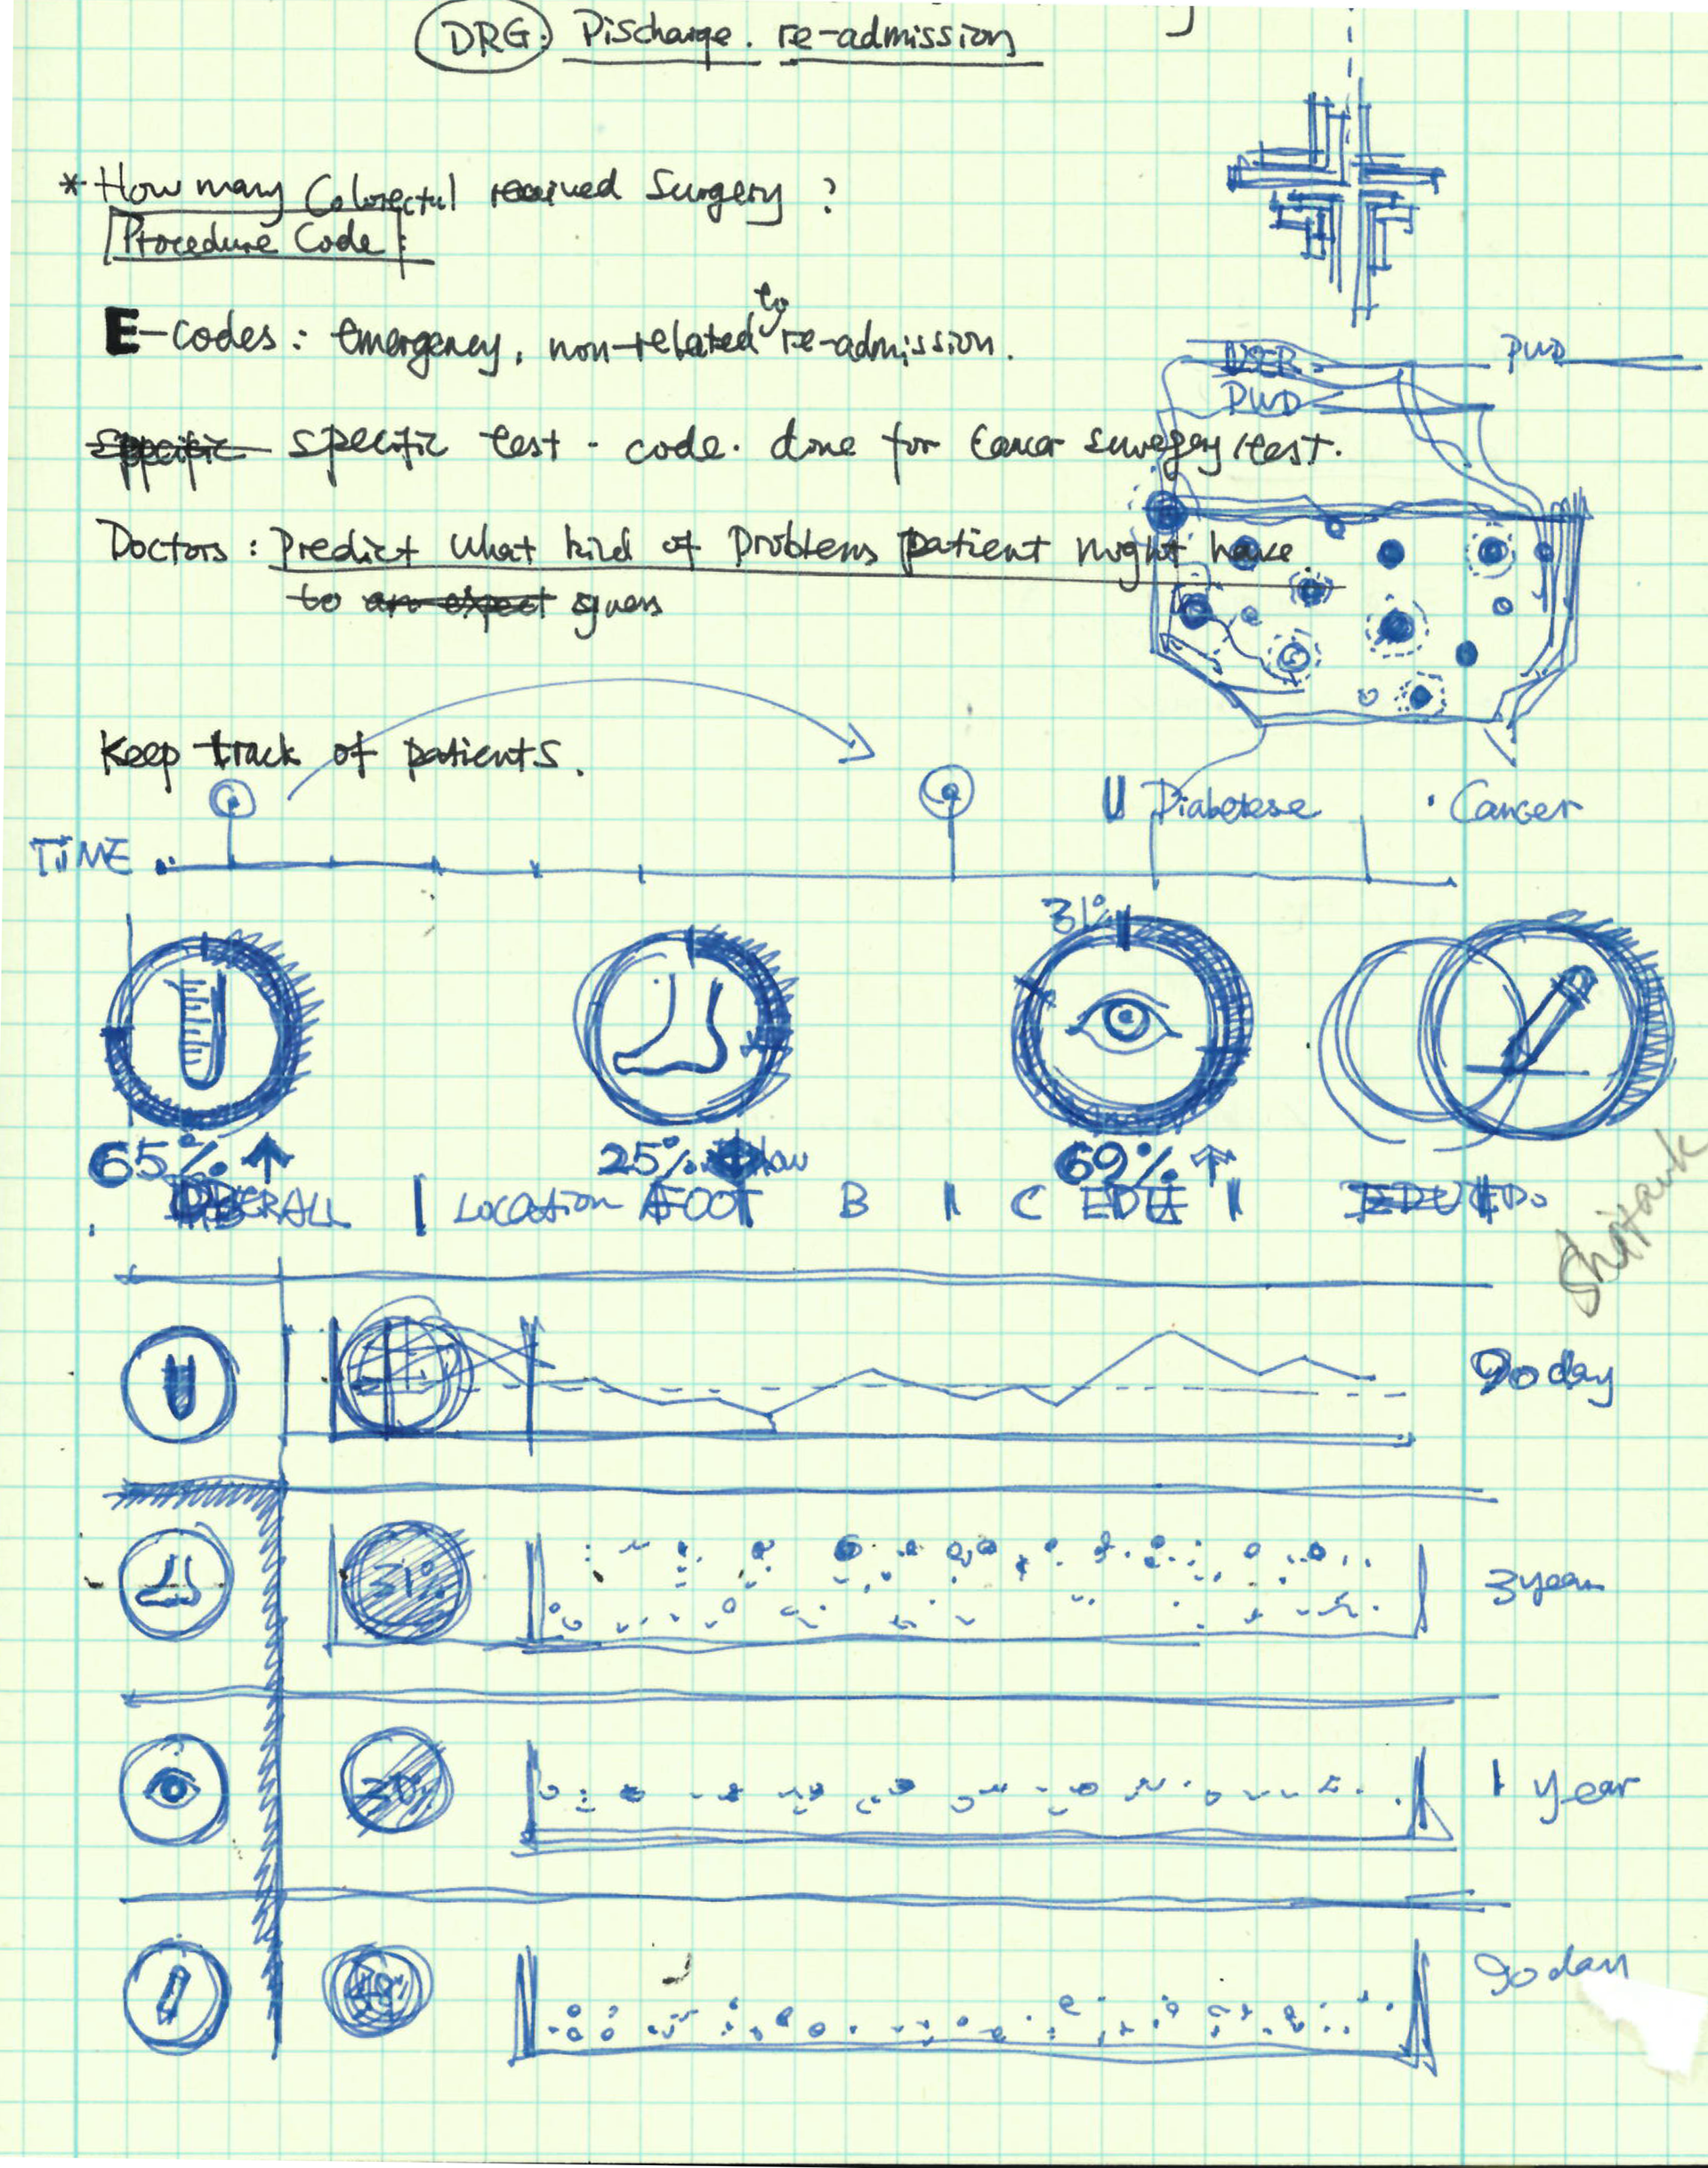 DRG. Discharge. re-admission
* How many Colorectal received Surgery ?
Procedure Code :
E-codes : emergency, non-related to re-admission.
NSER PWD
PWD
specific specific test - code. done for Cancer surgery/test.
Doctors : Predict what kind of problems patient might have
to an expect
Keep track of patients.
Diabetese · Cancer
TIME
31%
65% ↑ 25% low 69% ↑
OVERALL | LOCATION FOOT B | C EDU |
90 day
31% 3 year
30% 1 year
90 day